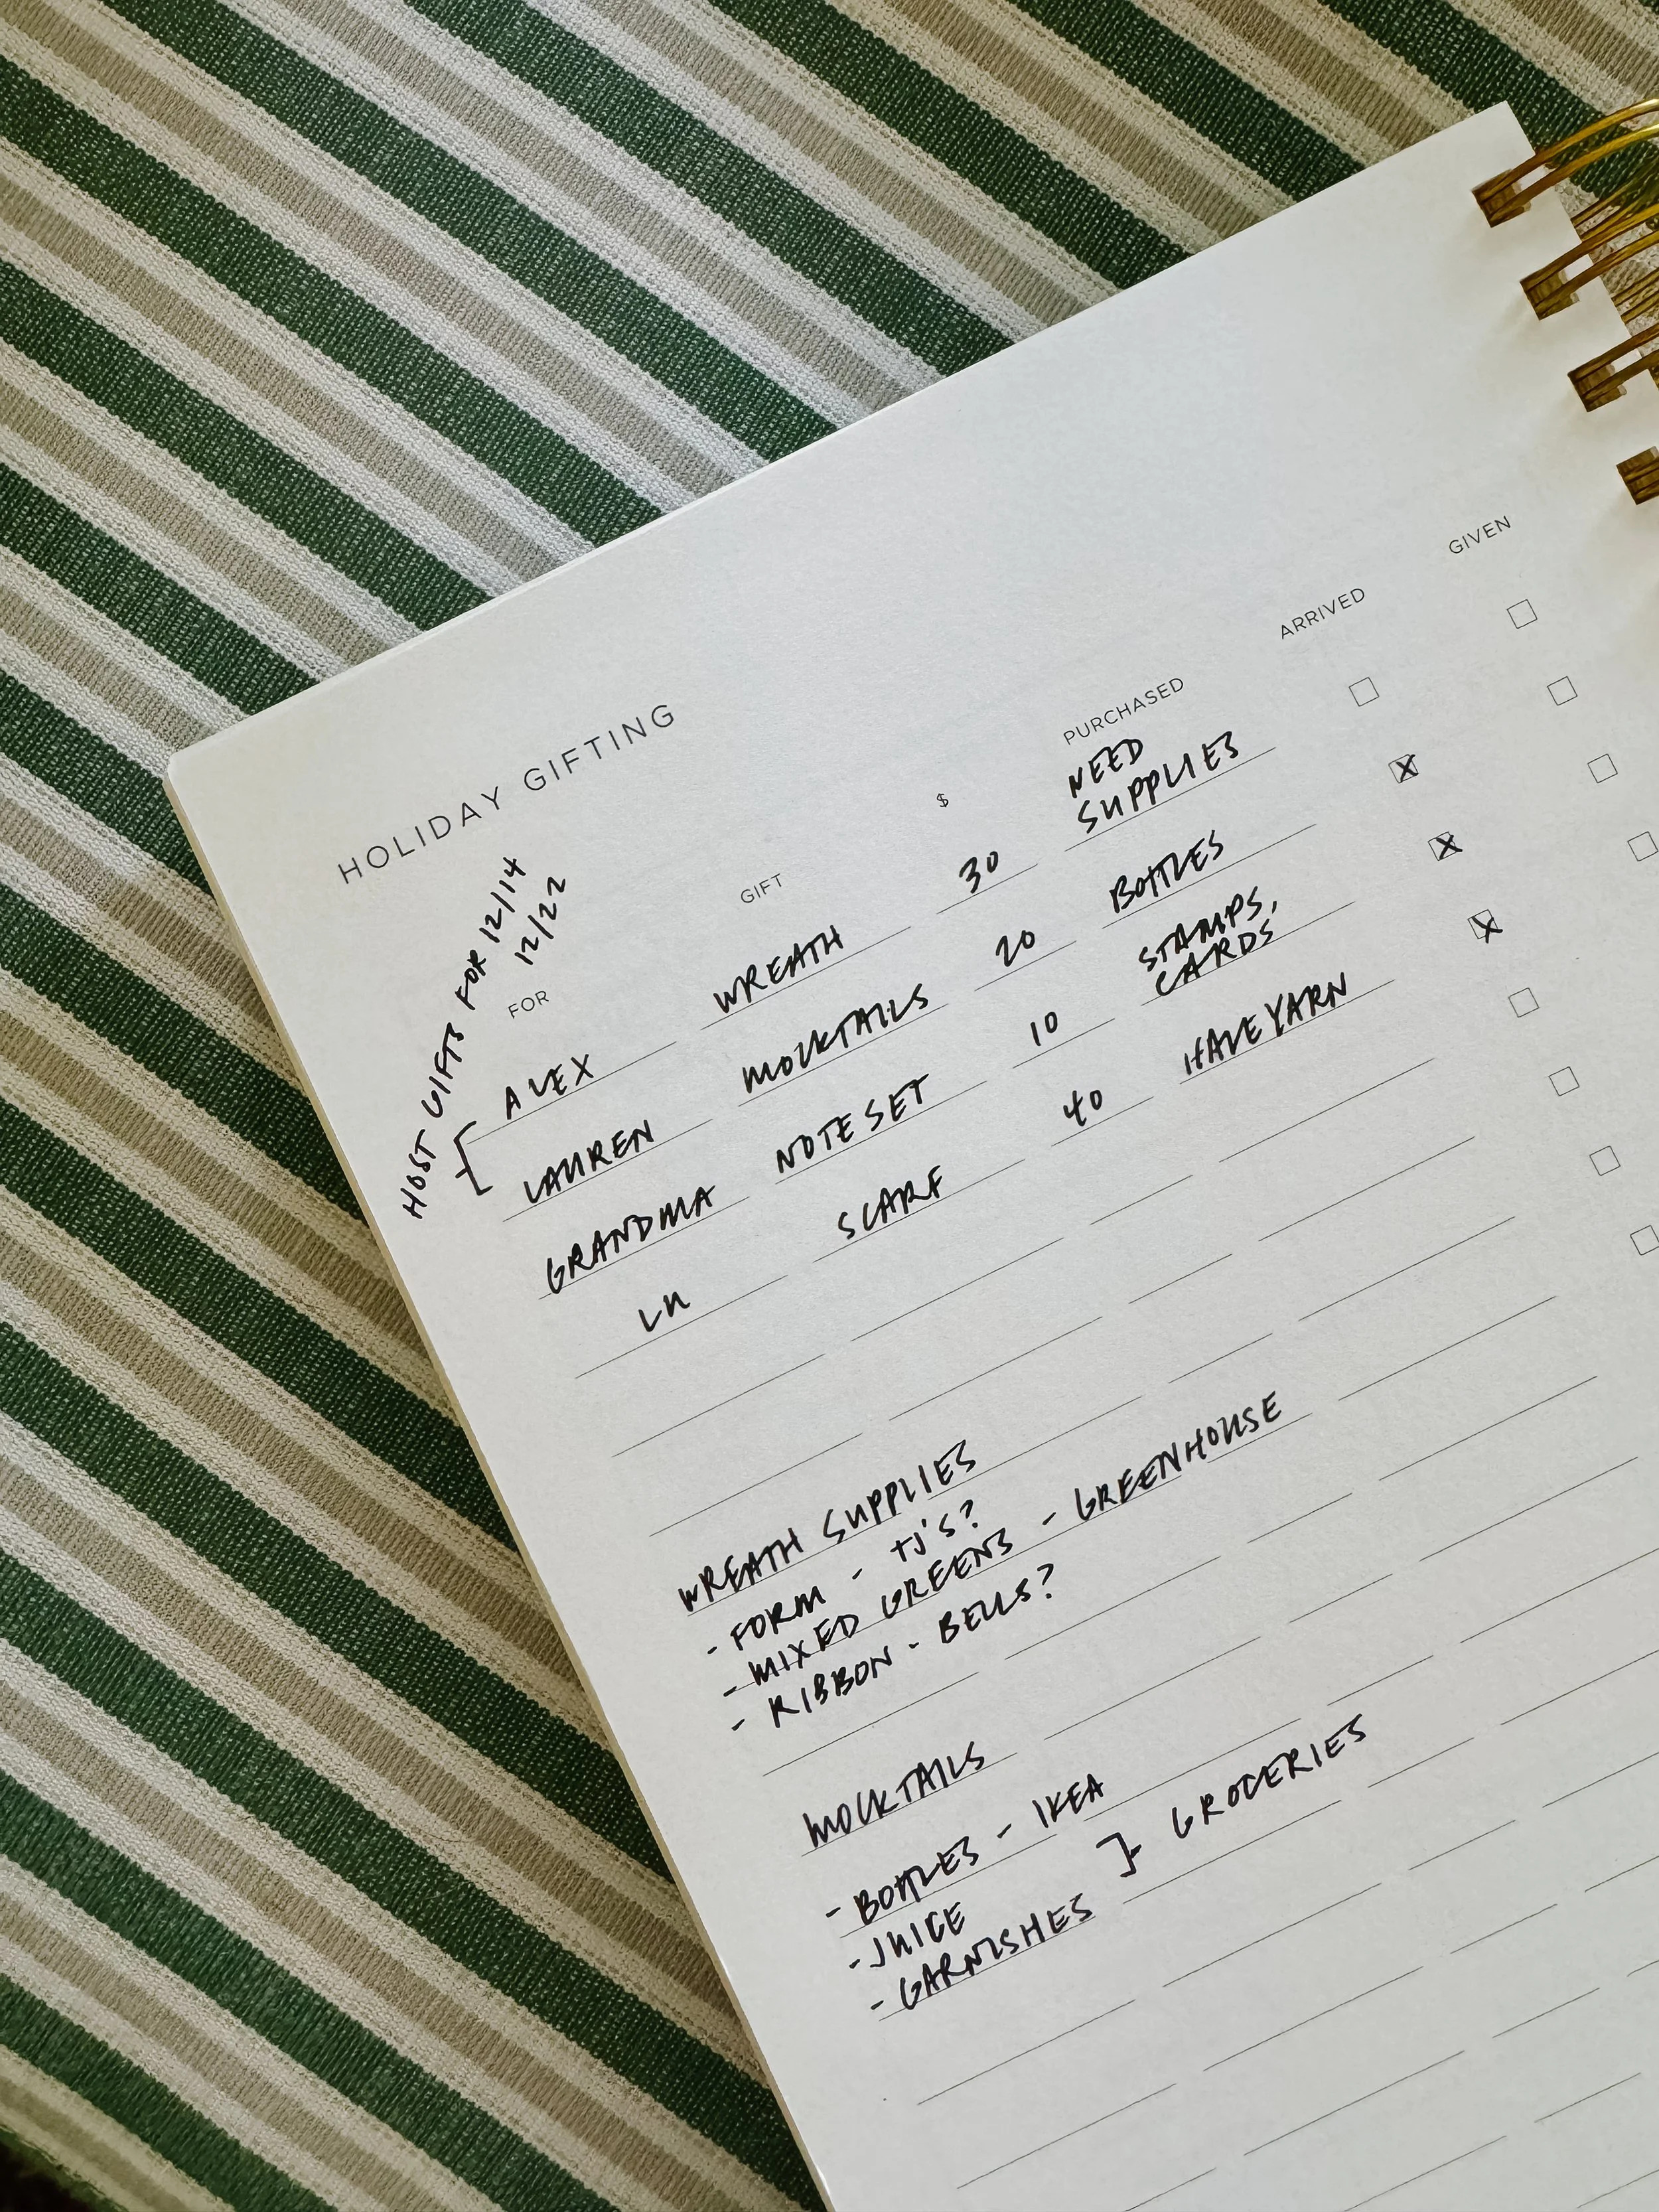 HOLIDAY GIFTING
HOST GIFTS FOR 12/14
12/22
FOR GIFT $ PURCHASED ARRIVED GIVEN
ALEX WREATH 30 NEED SUPPLIES
LAUREN MOCKTAILS 20 BOTTLES
GRANDMA NOTE SET 10 STAMPS, CARDS
LU SCARF 40 HAVE YARN
WREATH SUPPLIES
- FORM - TJ'S?
- MIXED GREENS - GREENHOUSE
- RIBBON - BELLS?
MOCKTAILS
- BOTTLES - IKEA
- JUICE
- GARNISHES } GROCERIES